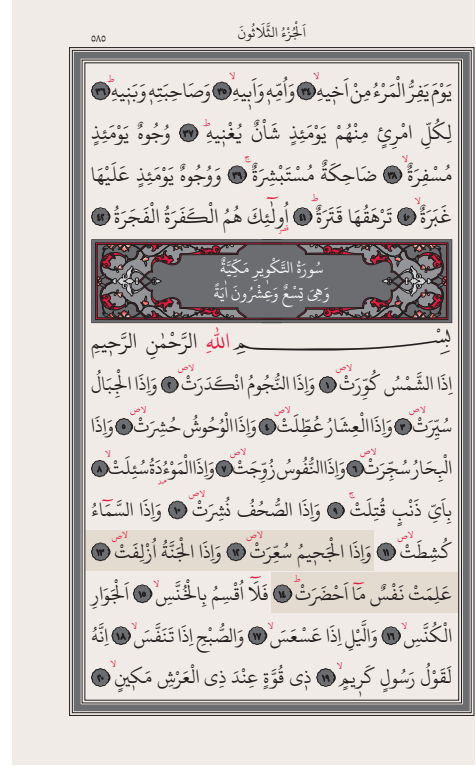 اَلْجُزْءُ الثَّلَاثُونَ
٥٨٥
يَوْمَ يَفِرُّ الْمَرْءُ مِنْ اَخٖيهِۙ ٣٤ وَاُمِّهٖ وَاَبٖيهِۙ ٣٥ وَصَاحِبَتِهٖ وَبَنٖيهِؕ ٣٦
لِكُلِّ امْرِئٍ مِنْهُمْ يَوْمَئِذٍ شَاْنٌ يُغْنٖيهِؕ ٣٧ وُجُوهٌ يَوْمَئِذٍ
مُسْفِرَةٌۙ ٣٨ ضَاحِكَةٌ مُسْتَبْشِرَةٌۚ ٣٩ وَوُجُوهٌ يَوْمَئِذٍ عَلَيْهَا
غَبَرَةٌۙ ٤٠ تَرْهَقُهَا قَتَرَةٌؕ ٤١ اُولٰٓئِكَ هُمُ الْكَفَرَةُ الْفَجَرَةُ ٤٢
سُورَةُ التَّكْوٖيرِ مَكِّيَّةٌ
وَهِيَ تِسْعٌ وَعِشْرُونَ اٰيَةً
بِسْمِ اللّٰهِ الرَّحْمٰنِ الرَّحٖيمِ
اِذَا الشَّمْسُ كُوِّرَتْۙ ١ وَاِذَا النُّجُومُ انْكَدَرَتْۙ ٢ وَاِذَا الْجِبَالُ
سُيِّرَتْۙ ٣ وَاِذَا الْعِشَارُ عُطِّلَتْۙ ٤ وَاِذَا الْوُحُوشُ حُشِرَتْۙ ٥ وَاِذَا
الْبِحَارُ سُجِّرَتْۙ ٦ وَاِذَا النُّفُوسُ زُوِّجَتْۙ ٧ وَاِذَا الْمَوْءُدَةُ سُئِلَتْۙ ٨
بِاَيِّ ذَنْبٍ قُتِلَتْۚ ٩ وَاِذَا الصُّحُفُ نُشِرَتْۙ ١٠ وَاِذَا السَّمَٓاءُ
كُشِطَتْۙ ١١ وَاِذَا الْجَحٖيمُ سُعِّرَتْۙ ١٢ وَاِذَا الْجَنَّةُ اُزْلِفَتْۙ ١٣
عَلِمَتْ نَفْسٌ مَٓا اَحْضَرَتْؕ ١٤ فَلَٓا اُقْسِمُ بِالْخُنَّسِۙ ١٥ اَلْجَوَارِ
الْكُنَّسِۙ ١٦ وَالَّيْلِ اِذَا عَسْعَسَۙ ١٧ وَالصُّبْحِ اِذَا تَنَفَّسَۙ ١٨ اِنَّهُ
لَقَوْلُ رَسُولٍ كَرٖيمٍۙ ١٩ ذٖى قُوَّةٍ عِنْدَ ذِى الْعَرْشِ مَكٖينٍۙ ٢٠